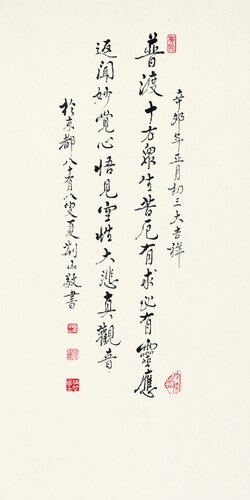 辛卯年正月初三大吉祥
普渡十方眾生苦厄有求必有靈應
返聞妙覺心悟見空性大悲真觀音
於京都八十有八叟夏荊山敬書